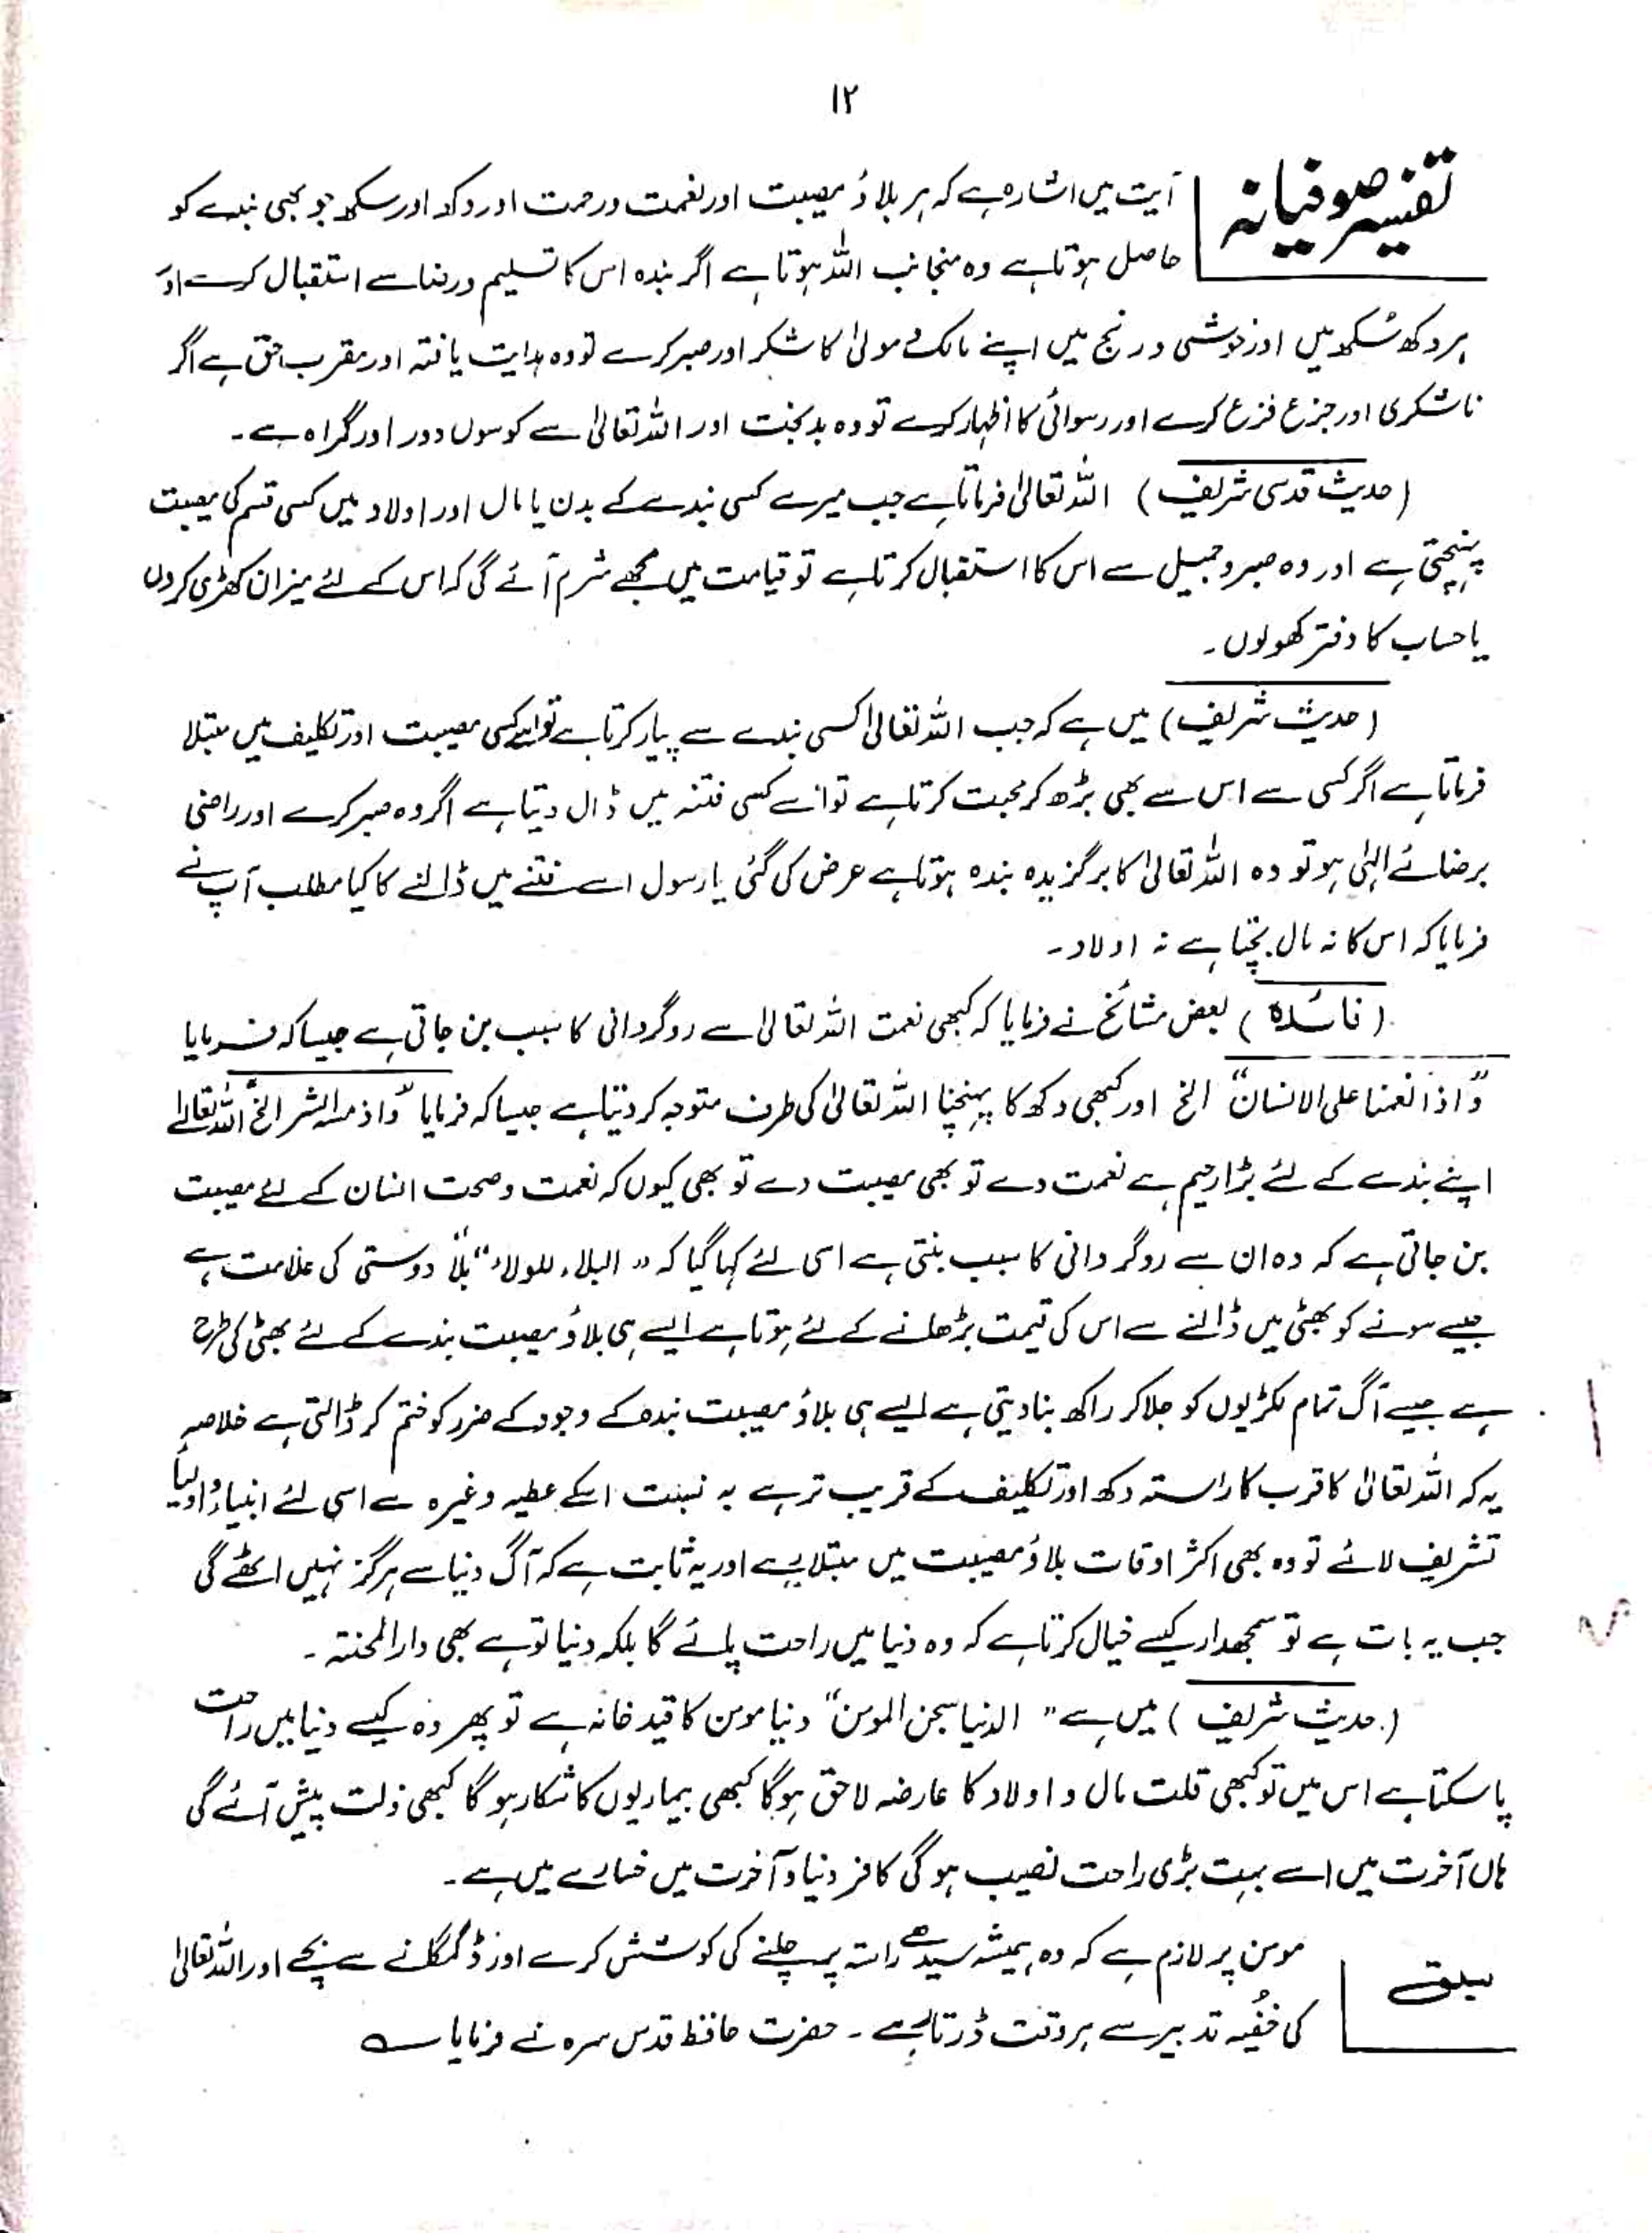 ۱۲
تفسیر صوفیانہ
آیت میں اشارہ ہے کہ ہر بلاؤ مصیبت اور نعمت ورحمت اور دکھ اور سکھ جو بھی بندے کو
حاصل ہوتا ہے وہ منجانب اللہ ہوتا ہے اگر بندہ اس کا تسلیم ورضا سے استقبال کرے اور
ہر دکھ سُکھ میں اور خوشی و رنج میں اپنے مالک و مولیٰ کا شکر اور صبر کرے تو وہ ہدایت یافتہ اور مقرب حق ہے اگر
ناشکری اور جزع فزع کرے اور رسوائی کا اظہار کرے تو وہ بدبخت اور اللہ تعالیٰ سے کوسوں دور اور گمراہ ہے۔
(حدیث قدسی شریف) اللہ تعالیٰ فرماتا ہے جب میرے کسی بندے کے بدن یا مال اور اولاد میں کسی قسم کی مصیبت
پہنچتی ہے اور وہ صبر و جمیل سے اس کا استقبال کرتا ہے تو قیامت میں مجھے شرم آئے گی کہ اس کے لئے میزان کھڑی کروں
یا حساب کا دفتر کھولوں۔
(حدیث شریف) میں ہے کہ جب اللہ تعالیٰ کسی بندے سے پیار کرتا ہے تو اسے کسی مصیبت اور تکلیف میں مبتلا
فرماتا ہے اگر کسی سے اس سے بھی بڑھ کر محبت کرتا ہے تو اسے کسی فتنہ میں ڈال دیتا ہے اگر وہ صبر کرے اور راضی
برضائے الہٰی ہو تو وہ اللہ تعالیٰ کا برگزیدہ بندہ ہوتا ہے عرض کی گئی یا رسول اسے فتنے میں ڈالنے کا کیا مطلب آپ نے
فرمایا کہ اس کا نہ مال بچتا ہے نہ اولاد۔
(فائدہ) بعض مشائخ نے فرمایا کہ کبھی نعمت اللہ تعالیٰ سے روگردانی کا سبب بن جاتی ہے جیسا کہ فرمایا
"وَاذا انعمنا علی الانسان" الخ اور کبھی دکھ کا پہنچنا اللہ تعالیٰ کی طرف متوجہ کر دیتا ہے جیسا کہ فرمایا "وَاذ مسہ الشر الخ" اللہ تعالیٰ
اپنے بندے کے لئے بڑا رحیم ہے نعمت دے تو بھی مصیبت دے تو بھی کیوں کہ نعمت و صحت انسان کے لئے مصیبت
بن جاتی ہے کہ وہ ان سے روگردانی کا سبب بنتی ہے اسی لئے کہا گیا کہ "البلاء للولاء" بلا دوستی کی علامت ہے
جیسے سونے کو بھٹی میں ڈالنے سے اس کی قیمت بڑھانے کے لئے ہوتا ہے ایسے ہی بلاؤ مصیبت بندے کے لئے بھٹی کی طرح
ہے جیسے آگ تمام لکڑیوں کو جلا کر راکھ بنا دیتی ہے ایسے ہی بلاؤ مصیبت بندہ کے وجود کے ضرر کو ختم کر ڈالتی ہے خلاصہ
یہ کہ اللہ تعالیٰ کا قرب کا راستہ دکھ اور تکلیف کے قریب تر ہے بہ نسبت اسکے عطیہ وغیرہ سے اسی لئے انبیاء و اولیاء
تشریف لائے تو وہ بھی اکثر اوقات بلاؤ مصیبت میں مبتلا رہے اور یہ ثابت ہے کہ آگ دنیا سے ہرگز نہیں اٹھے گی
جب یہ بات ہے تو سمجھدار کیسے خیال کرتا ہے کہ وہ دنیا میں راحت پائے گا بلکہ دنیا تو ہے بھی دار المحنتہ۔
(حدیث شریف) میں ہے "الدنیا سجن المومن" دنیا مومن کا قید خانہ ہے تو پھر وہ کیسے دنیا میں راحت
پا سکتا ہے اس میں تو کبھی قلت مال و اولاد کا عارضہ لاحق ہو گا کبھی بیماریوں کا شکار ہو گا کبھی ذلت پیش آئے گی
ہاں آخرت میں اسے بہت بڑی راحت نصیب ہو گی کافر دنیا و آخرت میں خسارے میں ہے۔
سبق
مومن پر لازم ہے کہ وہ ہمیشہ سیدھے راستہ پر چلنے کی کوشش کرے اور ڈگمگانے سے بچے اور اللہ تعالیٰ
کی خفُیہ تدبیر سے ہر وقت ڈرتا رہے۔ حضرت حافظ قدس سرہ نے فرمایا ؎